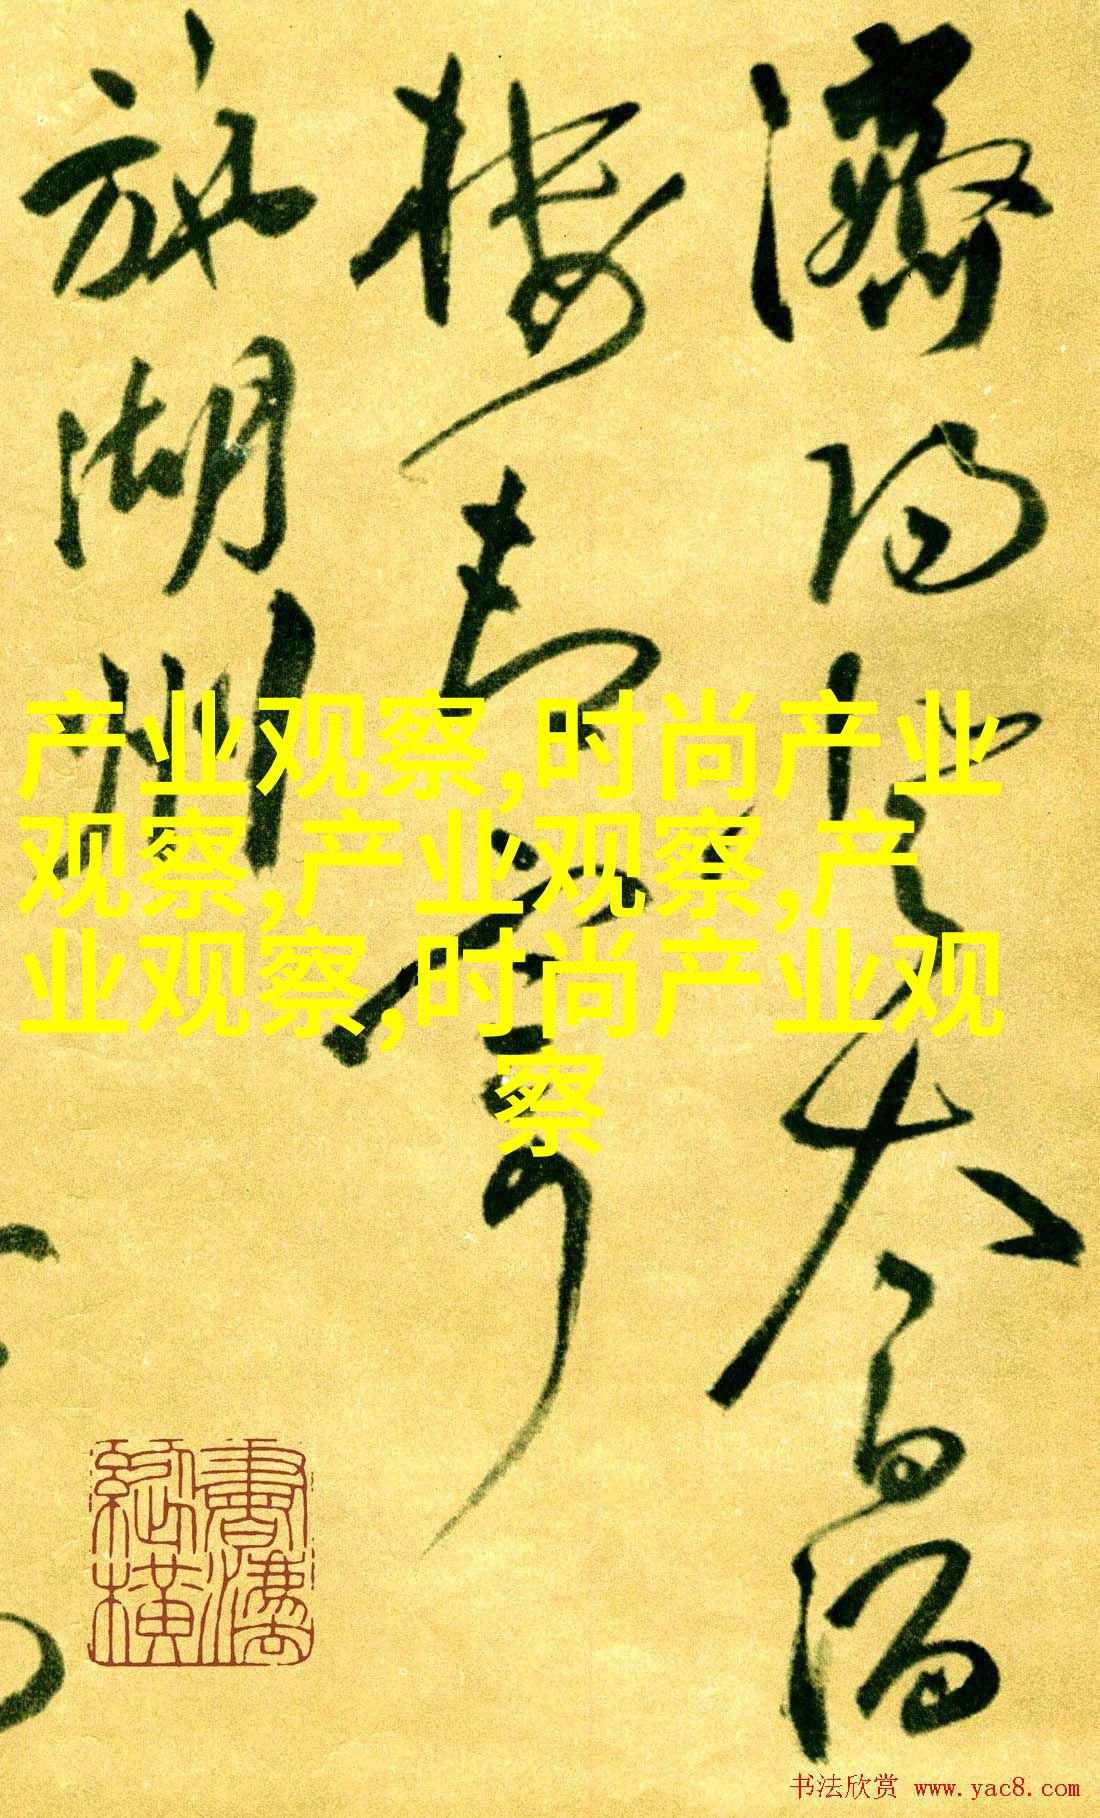 濟陽登太白酒
樓却寄
施湖州
产业观察,时尚产业
观察,产业观察,产
业观察,时尚产业观
察
书法欣赏 www.yac8.com